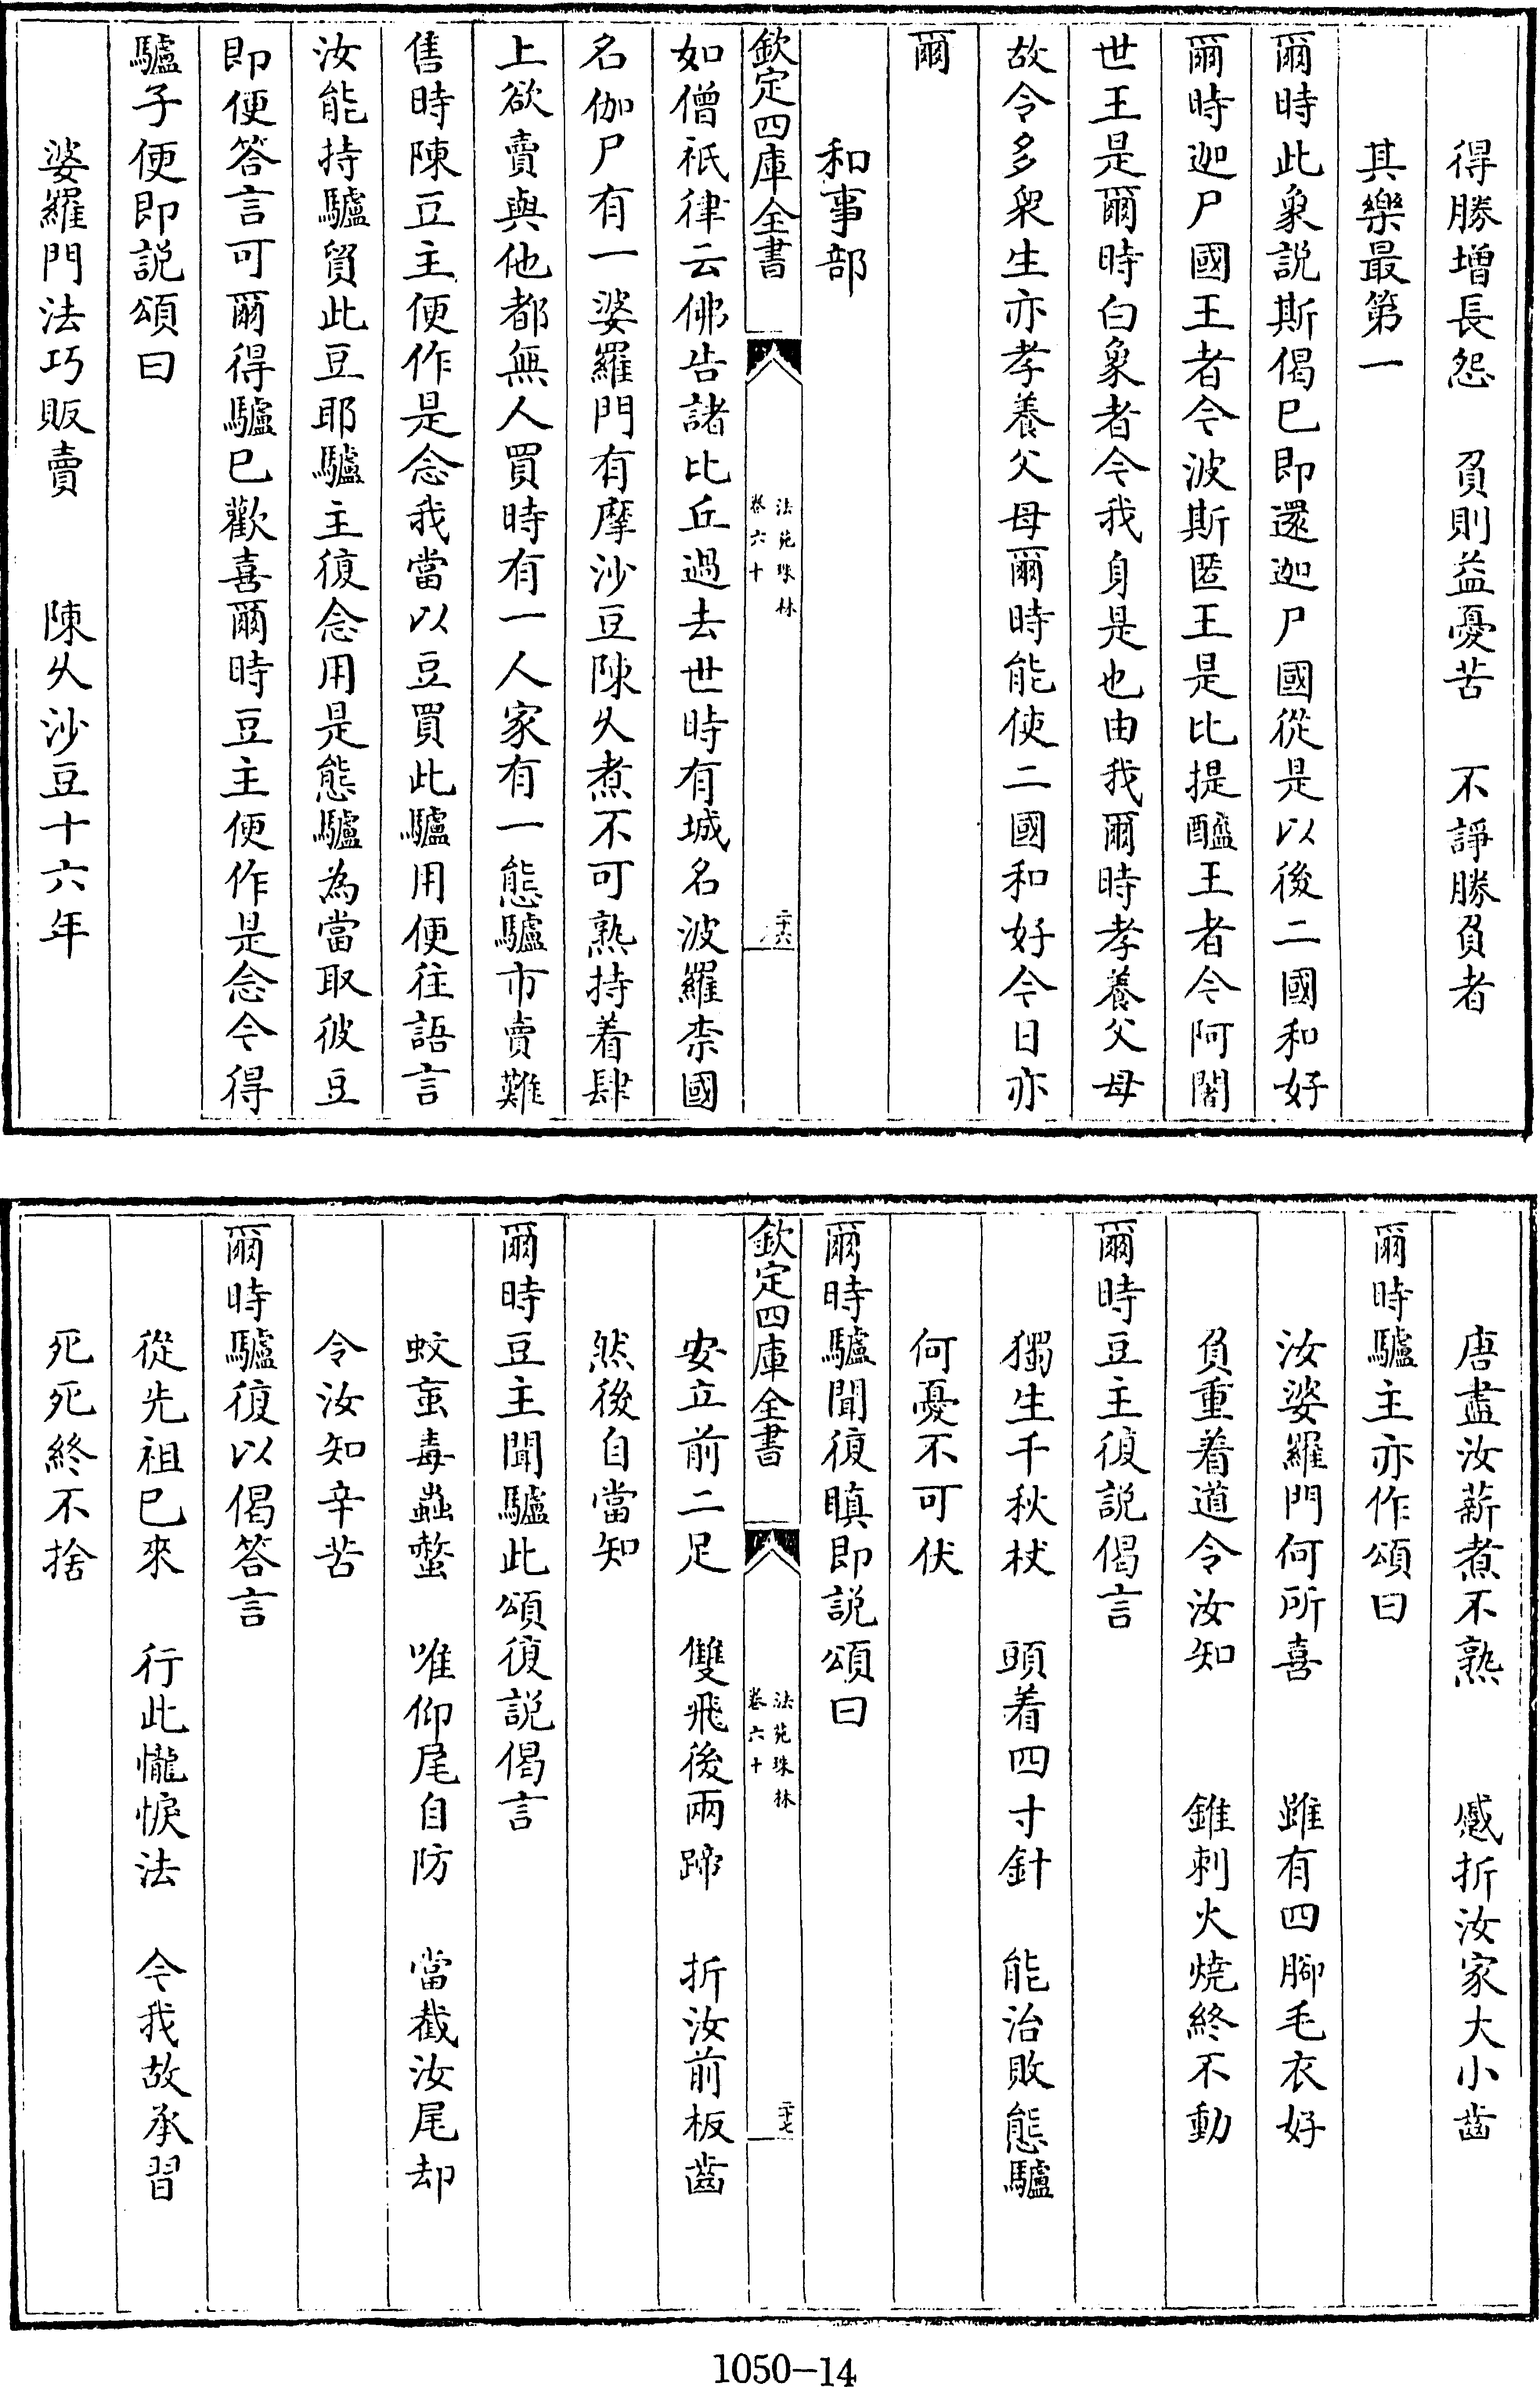 得勝增長怨　負則益憂苦　不諍勝負者
其樂最第一
爾時此象説斯偈已即還迦尸國從是以後二國和好
爾時迦尸國王者今波斯匿王是比提醯王者今阿闍
世王是爾時白象者今我身是也由我爾時孝養父母
故令多衆生亦孝養父母爾時能使二國和好今日亦
爾
和事部
欽定四庫全書
法苑珠林
卷六十
二十六
如僧祇律云佛告諸比丘過去世時有城名波羅柰國
名伽尸有一婆羅門有摩沙豆陳久煮不可熟持着肆
上欲賣與他都無人買時有一人家有一態驢市賣難
售時陳豆主便作是念我當以豆買此驢用便往語言
汝能持驢貿此豆耶驢主復念用是態驢為當取彼豆
即便答言可爾得驢已歡喜爾時豆主便作是念今得
驢子便即説頌曰
婆羅門法巧販賣　陳久沙豆十六年
唐盡汝薪煮不熟　慼折汝家大小齒
爾時驢主亦作頌曰
汝婆羅門何所喜　雖有四腳毛衣好
負重着道令汝知　錐刺火燒終不動
爾時豆主復説偈言
獨生千秋杖　頭着四寸針　能治敗態驢
何憂不可伏
爾時驢聞復瞋即説頌曰
欽定四庫全書
法苑珠林
卷六十
二十七
安立前二足　雙飛後兩蹄　折汝前板齒
然後自當知
爾時豆主聞驢此頌復説偈言
蚊䖟毒蟲螫　唯仰尾自防　當截汝尾却
令汝知辛苦
爾時驢復以偈答言
從先祖已來　行此㦬悷法　今我故承習
死死終不捨
1050-14